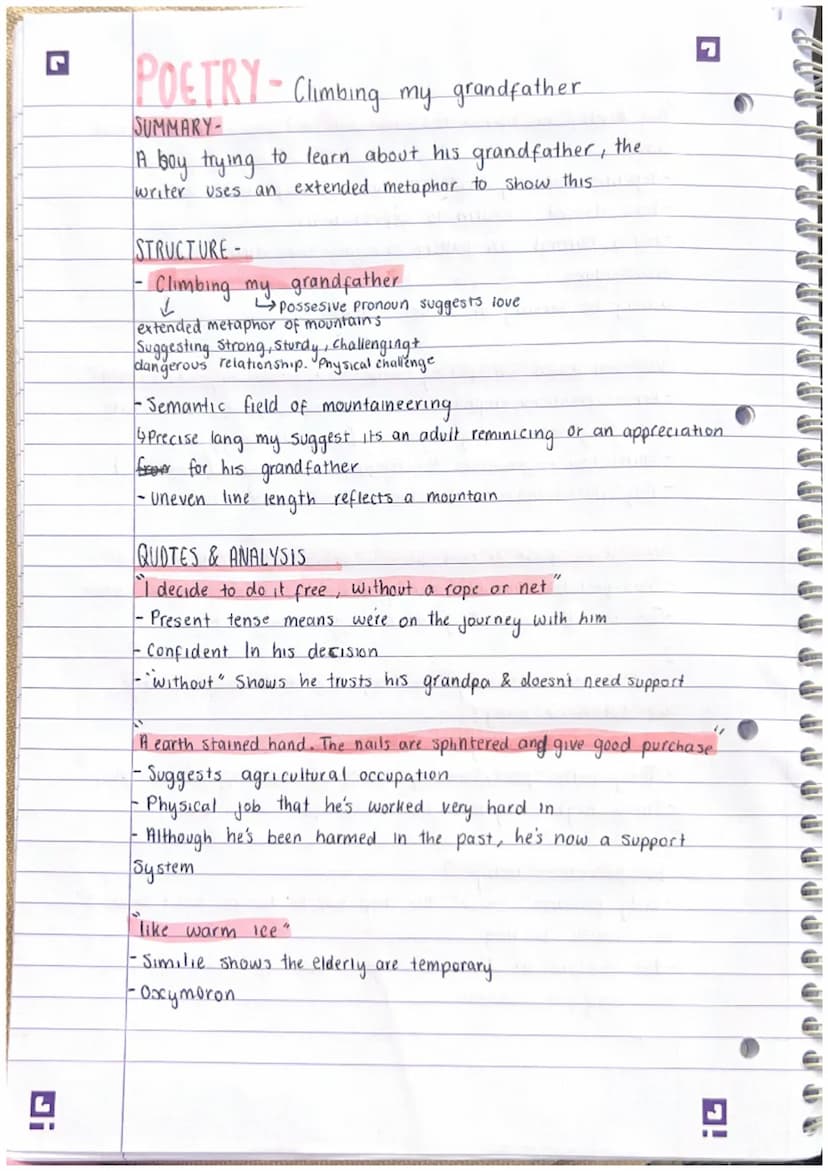 POETRY - Climbing my grandfather
SUMMARY-
A boy trying to learn about his grandfather, the
writer uses an extended metaphor to show this
STRUCTURE -
- Climbing my grandfather
↓ ↳ Possesive pronoun suggests love
extended metaphor of mountains
Suggesting Strong, Sturdy, challenging +
dangerous relationship. "Physical challenge
- Semantic field of mountaineering
↳ Precise lang my suggest its an adult reminicing or an appreciation
for his grandfather
- uneven line length reflects a mountain
QUOTES & ANALYSIS
"I decide to do it free, without a rope or net"
- Present tense means we're on the journey with him
- Confident In his decision
- "without" Shows he trusts his grandpa & doesn't need support
"A earth stained hand. The nails are splintered and give good purchase"
- Suggests agricultural occupation
- Physical job that he's worked very hard in
- Although he's been harmed in the past, he's now a support
System
"like warm ice"
- Similie shows the elderly are temporary
- Oxymoron